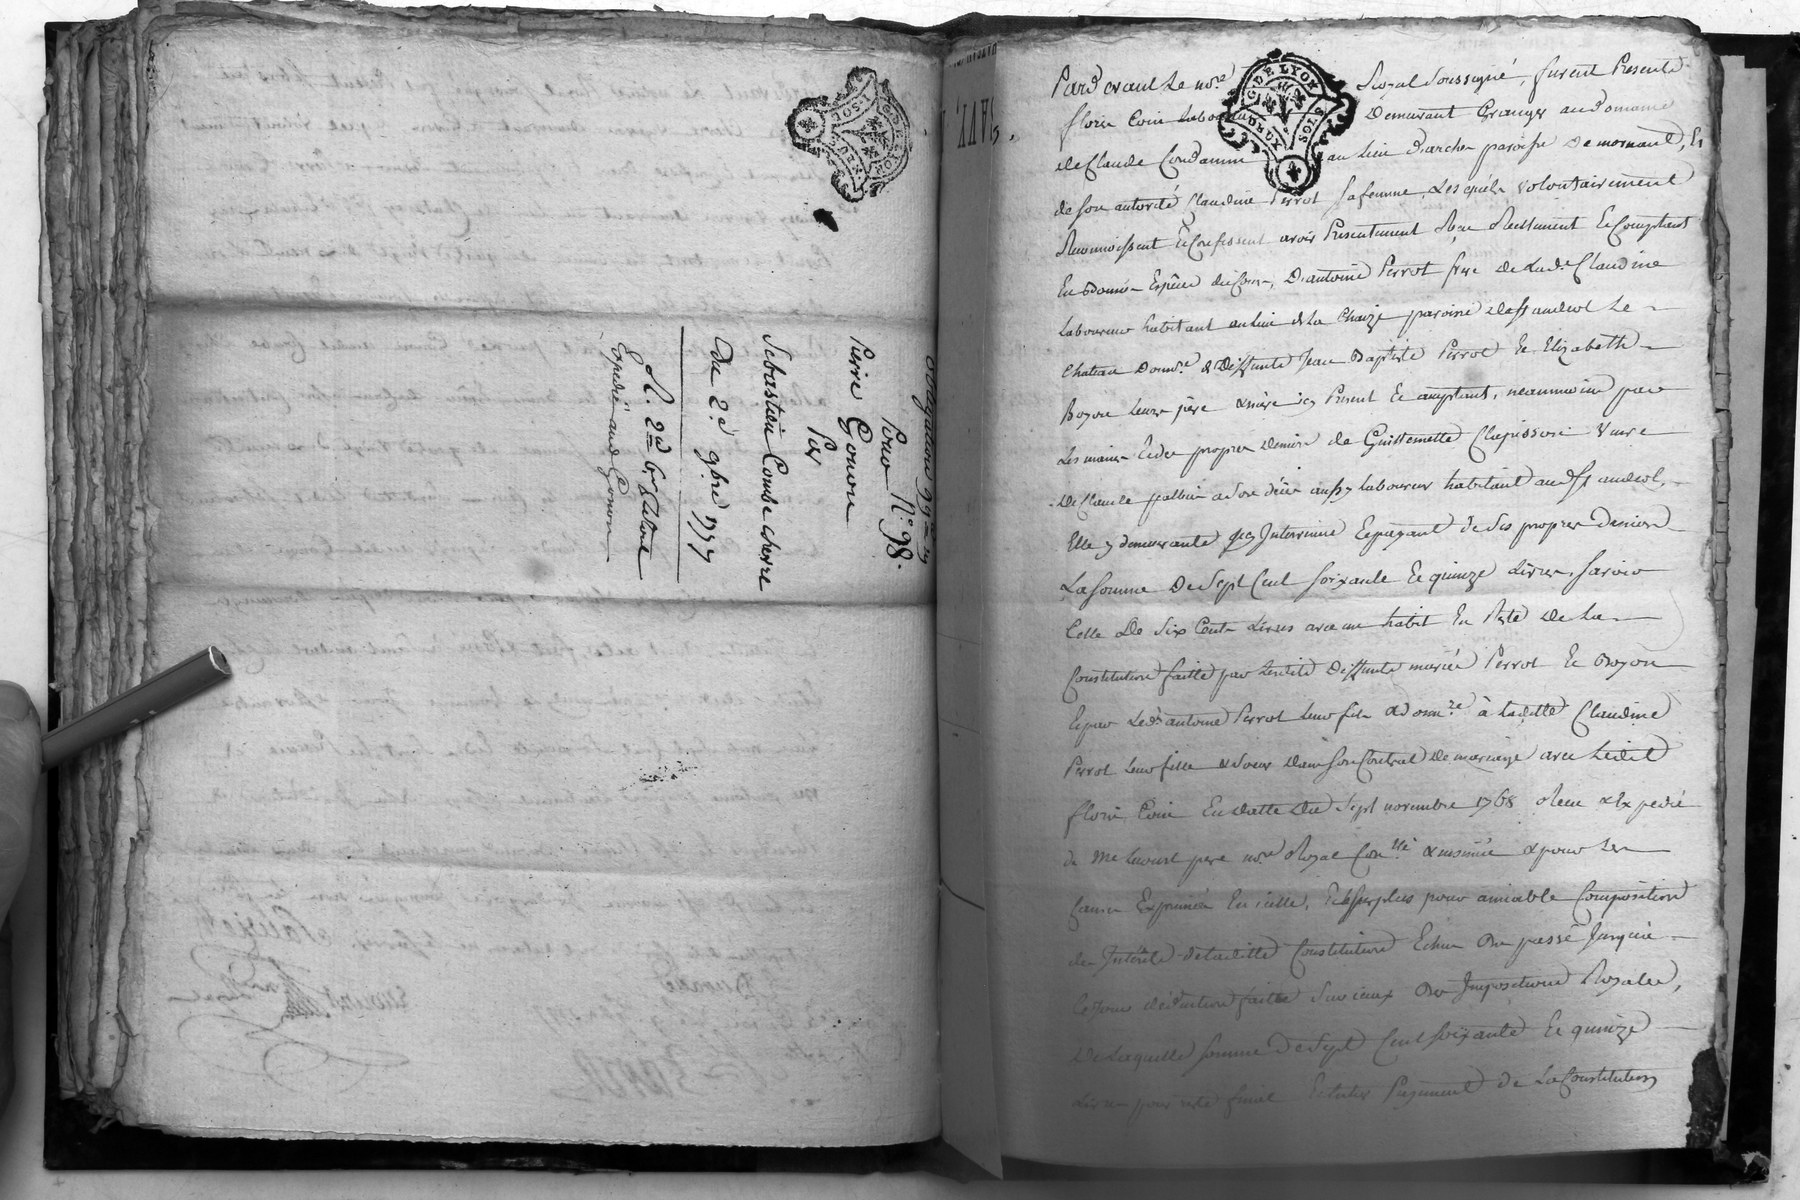 Obligation
N.° 98.
Pour
Pierre Gonon
Par
Sebastien Combe cherre
Du 2.d 9bre 1777
Expedié aud Gonon
G. DE LYON
DEUX SOLS
Pardevant Le no.re Royal Soussigné, furent Presents
florin Coin Laboureur Demeurant Granger au Domaine
de Claude Condamin au Lieu Darches paroisse De mornant, Et
de son autorité Claudine Perrot Sa femme, Lesquels volontairement
Reconnoissent & Confessent avoir Presentement Reçu Reellement Et Comptant
En Bonnes Espéces du Cours, D'antoine Perrot frere de Lad.e Claudine
Laboureur habitant au Lieu de La Chaize paroisse de st andeol Le
Chateau Donat.re de Deffunts Jean Baptiste Perrot & Elizabeth
Boyon Leurs père & mère icy Present Et acceptant, neanmoins par
Les mains & des propres deniers de Guillemette Veuve
De Claude vivant aussy Laboureur habitant aud st andeol,
Elle y demeurante icy Intervenue Et payant de Ses propres Deniers
La Somme De Sept Cent Soixante Et quinze Livres, Savoir
Celle De Six Cents Livres avec un habit En Reste De La
Constitution faitte par Lesdits Deffunts mariés Perrot Et Boyon
Et par Led.t antoine Perrot Leur fils & Donat.re à Laditte Claudine
Perrot Leur fille & Sœur Dans Son Contrat De mariage avec Ledit
florin Coin En Datte Du Sept novembre 1768 Reçu & Expedié
de Me pere no.re Royal & pour Les
Causes Exprimées En icelle, Et Le Surplus pour amiable Composition
des Intérêts de Laditte Constitution Echus Du passé Jusqu'à
Ce Jour déduction faitte Sur iceux Des Impositions Royales,
De Laquelle Somme de Sept Cent Soixante Et quinze
Livres pour reste final Et Entier Payement de La Constitution